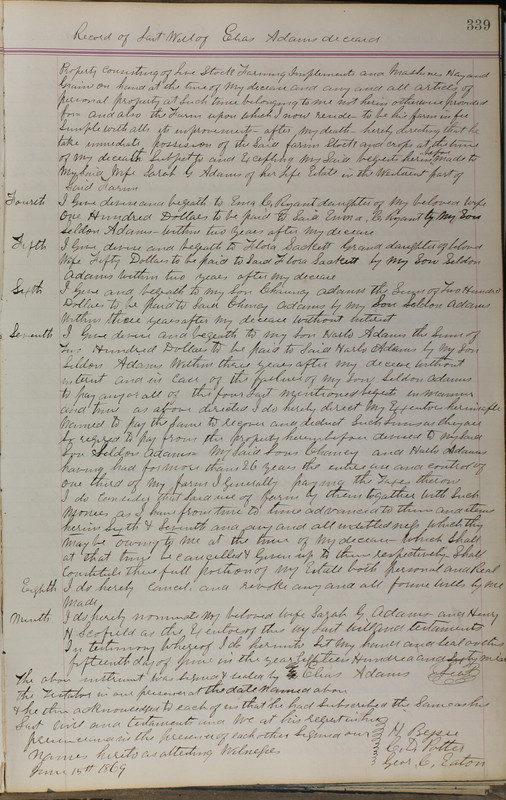 339
Record of Last Will of Elias Adams deceased
Property consisting of Live Stock Farming Implements and Machines Hay and
Grain on hand at the time of my decease and any and all articles of
personal property at such time belonging to me not herin otherwise provided
for and also the Farm upon which I now reside to be his farm in fee
Simple with all its improvements after my death hereby directing that he
take immediate possession of the Said farm Stock and crops at the time
of my decease Subject to and Excepting my Said bequests herin made to
my Said Wife Sarah G Adams of her Life Estate in the Western part of
Said Farm
Fourth I Give devise and bequeath to Emma C. Ryant daughter of my beloved wife
One Hundred Dollars to be paid to Said Emma C Ryant by My Son
Seldon Adams within two years after my decease
Fifth I Give devise and beqeath to Flora Sackett Grand daughter of beloved
Wife Fifty Dollars to be paid to Said Flora Sackett by My Son Seldon
Adams within two years after my decease
Sixth I Give and beqeath to my Son Chancy Adams the Sum of Two Hundred
Dollars to be paid to Said Chancy Adams by my Son Seldon Adams
Within three years after my decease without intrest
Seventh I Give devise and beqeath to my Son Harlo Adams the Sum of
Two Hundred Dollars to be paid to Said Harlo Adams by My Son
Seldon Adams Within three years after my decease without
intrest and in Case of the failure of My Son Seldon Adams
to pay any or all of the four last mentioned beqests in manner
and time as above directed I do herely direct My Executors herin after
Named to pay the Same to legees and deduct Such Sums as they are
so reqired to pay from the property heretofore devised to my Said
Son Seldon Adams My Said Sons Chancy and Harlo Adams
having had for more than 26 years the entire use and control of
one third of my farms I generally paying the Taxes theron
I do Consider that Said use of farms by them together with Such
Monies as I have from time to time advanced to them and items
herin Sixth & Seventh and any and all indebtedness which they
may be owing to me at the time of My decease which Shall
at that time be cancelled & Given up to them respectively Shall
Constitute their full portion of my Estate both personal and Real
Eighth I do herely cancel and revoke any and all former wills by me
Made
Nineth I do herely nominate My beloved wife Sarah G. Adams and Henry
H Scofield as the Executors of this my Last Will and testament
In testimony Whereof I do herunto Set My hand and Seal on this
fifteenth day of June in the year Eighteen Hundred and Sixty nine
The above instrument was Signed & sealed by Elias Adams Seal
The Testator in our presence at the date Named above
& he then acknowledged to each of us that he had Subscribed the Same as his
Last Will and testament and We at his reqest in his
presence and in the presence of each other Signed our
Names hereto as attesting Witnesses
June 15th 1869
C. D. Potter
Geor. C. Eaton